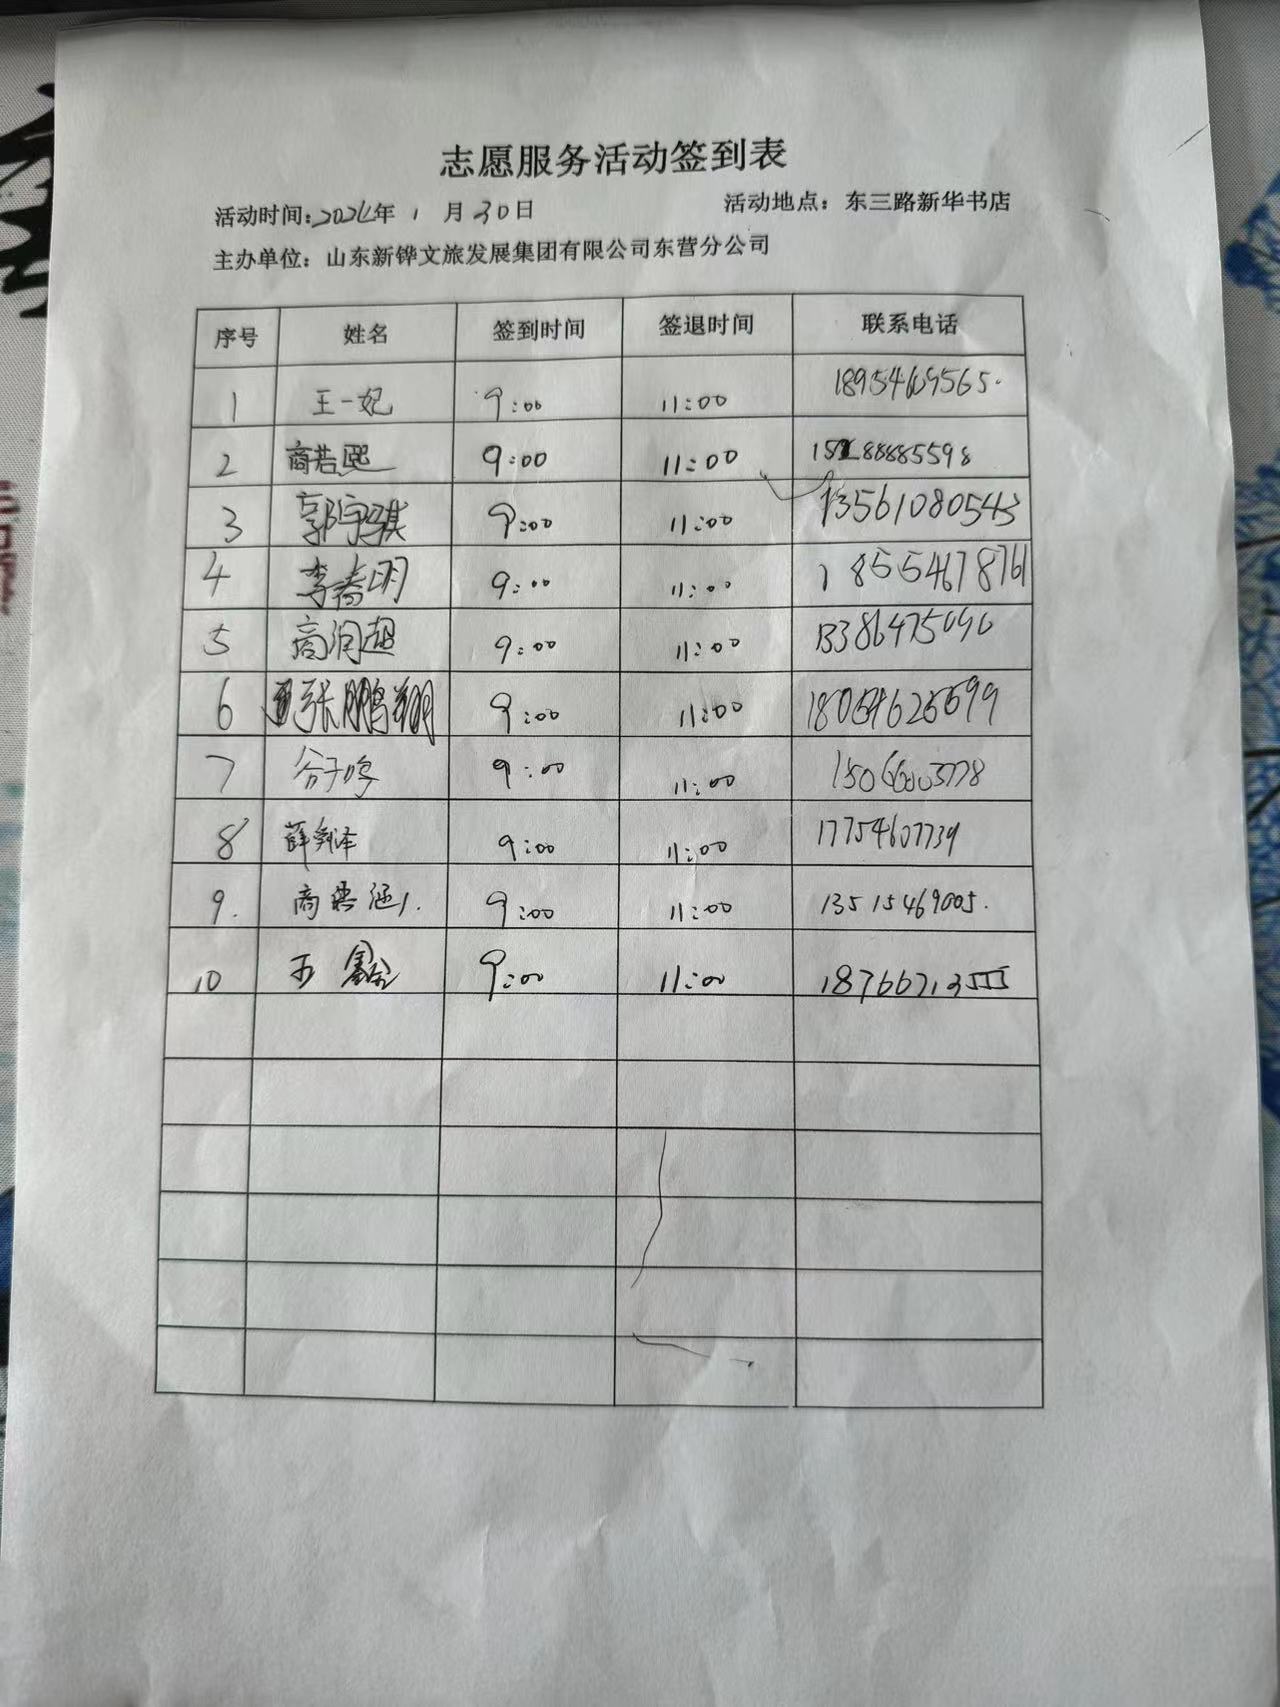 志愿服务活动签到表
活动时间: 2024年 1 月 30日 活动地点：东三路新华书店
主办单位：山东新铧文旅发展集团有限公司东营分公司
序号 姓名 签到时间 签退时间 联系电话
1 王一妃 9:00 11:00 18954609565.
2 商若熙 9:00 11:00 88885598
3 郭宇骐 9:00 11:00 13561080543
4 李春明 9:00 11:00 18554678761
5 商润超 9:00 11:00
6 张鹏翔 9:00 11:00 18054625599
7 9:00 11:00
8 薛泽 9:00 11:00 17754607739
9. 商涵 9:00 11:00 13515469005.
10 王鑫 9:00 11:00 18766713555